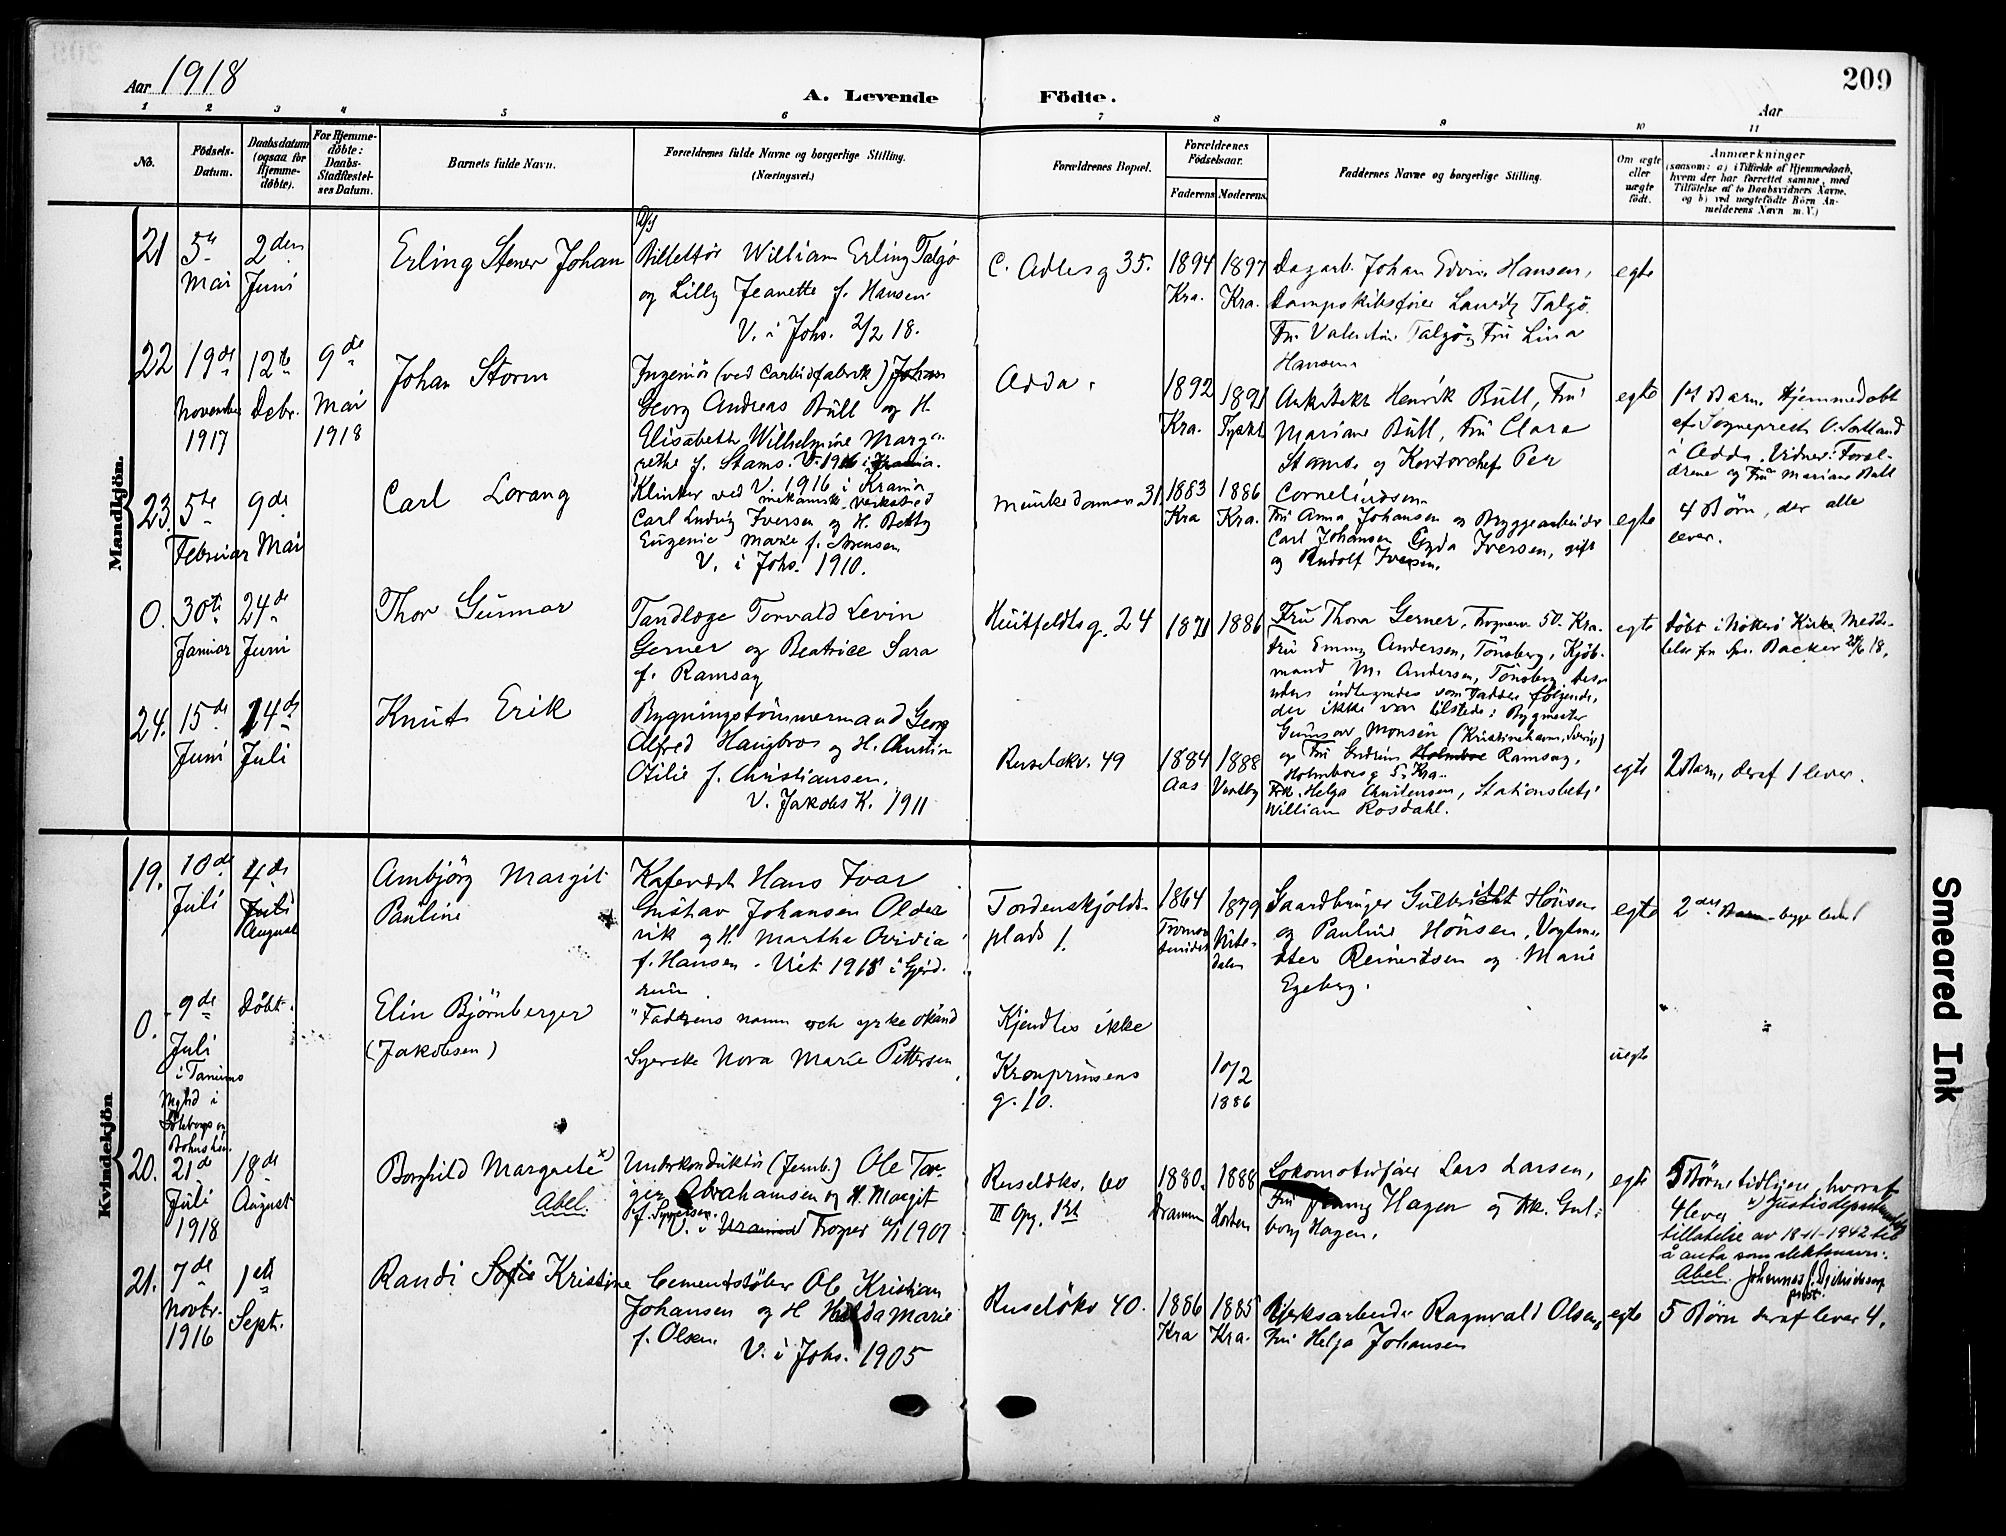 209
Aar 1918
A. Levende Födte.
Aar
1 2 3 4 5 6 7 8 9 10 11
No.
Födsels-
Datum.
Daabsdatum
(ogsaa for
Hjemme-
döbte).
For Hjemme-
döbte:
Daabs-
Stadfæstel-
ses Datum.
Barnets fulde Navn.
Forældrenes fulde Navne og borgerlige Stilling.
(Næringsvei.)
Forældrenes Bopæl.
Forældrenes
Födselsaar.
Faderens Moderens.
Faddernes Navne og borgerlige Stilling.
Om ægte
eller
uægte
födt.
Anmærkninger
(saasom: a) i Tilfælde af Hjemmedaab,
hvem der har forrettet samme, med
Tilföielse af to Daabsvidners Navne,
og b) ved uægtefödte Börn An-
melderens Navn m. V.)
Mandkjön.
21
5te
Mai
2den
Juni
Erling Stener Johan
Billettör William Erling Talgö
og Lilly Jeanette f. Hansen
V. i Johs. 2/2 18.
C. Adlersg 35.
1894
Kra.
1897
Kra.
Dagarb. Johan Edvin Hansen,
Dampskibsförer Lauritz Talgö
Fru Valentine Talgö, Fru Lina
Hansen
egte
22
19de
November
1917
12te
Debr.
9de
Mai
1918
Johan Storm
Ingeniör (ved Carbidfabrik) Johan
Georg Andreas Bull og H.
Elisabeth Wilhelmine Marga-
rethe f. Stams. V. 1916 i Krania.
V. 1916 i Krania
Odda.
1892
Kra.
1891
Tyskl.
Arkitekt Henrik Bull, Fru
Mariane Bull, Fru Clara
Stams og Kontorchef Per
Corneliussen
egte
1st Barn. Hjemmedöbt
af Sogneprest O. Sortland
i Odda. Vidner: Foræl-
drene og Fru Mariane Bull
23.
5te
Februar
9de
Mai
Carl Lorang
Klinker ved mekanisk verksted
Carl Ludvig Iversen og H. Betty
Eugenie Marie f. Sörensen
V. i Johs. 1910.
Munkedamsv 31
1883
Kra
1886
Kra.
Fru Anna Johansen og Bryggearbeider
Carl Johansen Gyda Iversen, gift
og Rudolf Iversen.
egte
4 Börn, der alle
lever.
0.
30te
Januar
24de
Juni
Thor Gunnar
Tandlæge Torvald Levin
Gerner og Beatrice Sara
f. Ramsay
Huitfeldtsg. 24
1871
1886
Fru Thora Gerner, Trognerv 50. Kra.
Fru Emmy Andersen, Tönsberg, Kjöb-
mand M. Andersen, Tönsberg desu-
uden indtegnedes som Faddere fölgende,
der ikke var tilstede: Bygmester
Gunnar Monsen (Kristinehamn, Sverige)
og Fru Endrine Holmboe Ramsay,
Holmboesg 5, Kra.
egte
Döbt i Nökerö Kirke. Medde-
lelse fra Spr. Backer 24/6 18.
24.
15de
Juni
14de
Juli
Knut Erik
Bygningstömmermand Georg
Alfred Haugbros og H. Christine
Otilie f. Christiansen.
V. Jakobs K. 1911
Ruselökv. 49
1884
Aas
1888
Vestby
Frk. Helga Christensen, Stationsbetj.
William Rosdahl.
egte
2 Barn, deraf 1 lever.
Kvindekjön
19.
10de
Juli
4de
Juli
August
Ambjörg Margit
Pauline
Kafevert Hans Ivar
Gustav Johansen Older
vik og H. Martha Ovidia
f. Hansen. Viet 1918 i Gjerd-
rum
Tordenskjolds-
plads 1.
1864
Tromsö
1879
Nite-
dalen
Gaardbruger Gulbrandt Hönsen
og Pauline Hönsen, Vogtme-
ster Reinertsen og Marie
Egeberg.
egte
2det Barn. begge lever
0.
9de
Juli
i Tanums
Döbt.
Elin Björnberger
(Jakobsen)
"Faderens namn och yrke okänd
Syerske Nora Marie Pettersen
Kjendtes ikke
Kronprinsens
g. 10.
10/2
1886
uegte
20.
21de
Juli
1918
18de
August
Borghild Margrete x)
Abel.
Underkonduktör (Jernb.) Ole Tor-
geir Abrahamsen og H. Margit
f. Syversen.
V. i Uranienb Troper 4/1 1907
Ruselökv. 60
III Opg. 1st
1880.
Drammen
1888
Horten
Lokomotivförer Lars Larsen,
Fru Jenny Hagen og Frk. Gul-
borg Hagen.
egte
5 Börn tidligere, hvoraf
4 lever x) Justisdepartementets
tillatelse av 18-11-1942 til
å anta som slektsnavn:
Abel. Johannes
prest.
21.
7de
Novbr.
1916
1ste
Sept.
Randi Sofie Kristine
Cementstöber Ole Kristian
Johansen og H Hulda Marie
f. Olsen
V. i Johs. 1905
Ruselökv 40.
1886
Kra
1885
Kra.
Verksarbeider Ragnvald Olsen,
Fru Helga Johansen
egte
5 Börn deraf lever 4.
Smeared Ink